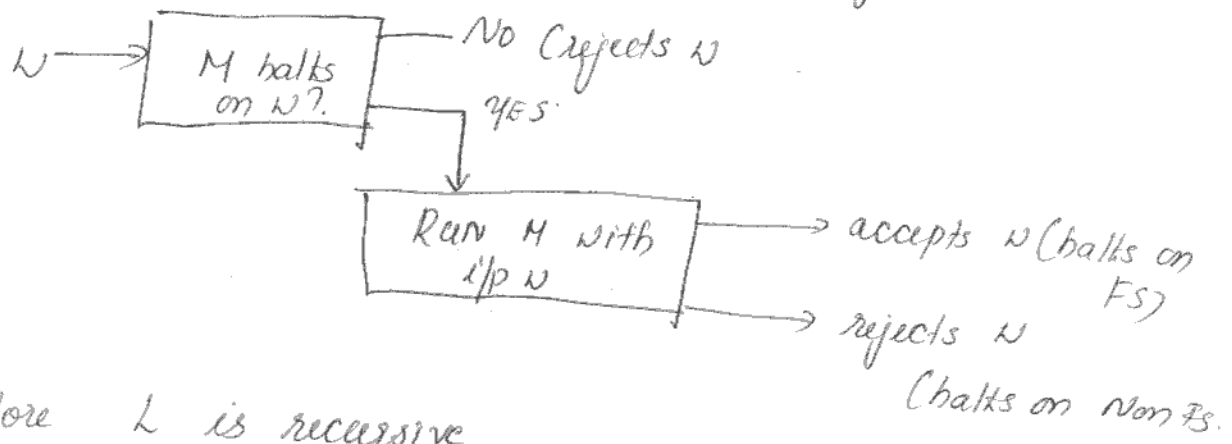 w
M halts
on w?
No (rejects w
YES
Run M with
i/p w
accepts w (halts on
FS)
rejects w
(halts on Non Fs.
fore L is recursive